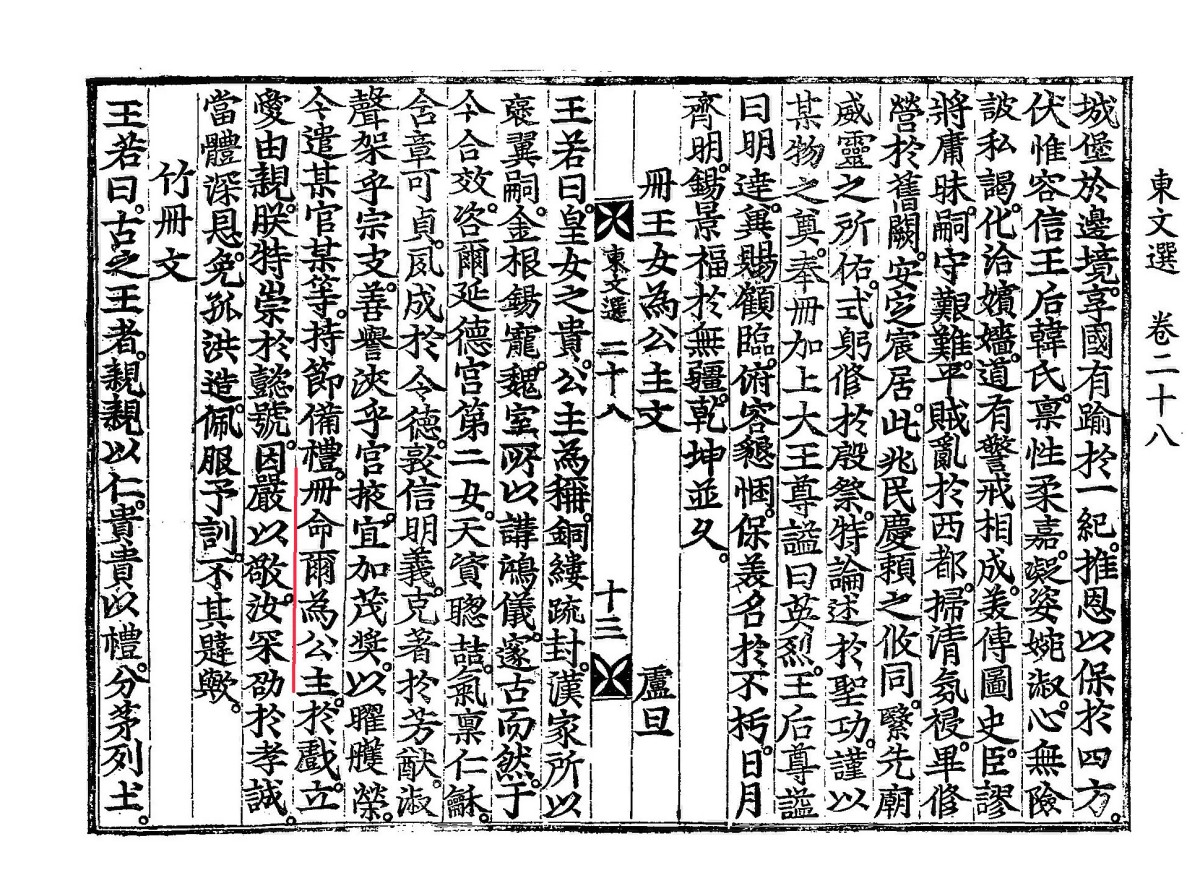 東文選 卷二十八
城堡於邊境。享國有踰於一紀。推恩以保於四方。
伏惟容信王后韓氏。禀性柔嘉。凝姿婉淑。心無險
詖私謁。化洽嬪嬙。道有警戒相成。美傳圖史。臣謬
將庸昧。嗣守艱難。平賊亂於西都。掃清氛祲。畢修
營於舊闕。安定宸居。此兆民慶賴之攸同。繄先廟
威靈之所佑。式躬修於殷祭。特論述於聖功。謹以
某物之奠。奉冊加上大王尊謚曰英烈。王后尊謚
曰明達。冀賜顧臨。俯容懇悃。保美名於不朽。日月
齊明。錫景福於無疆。乾坤並久。
冊王女為公主文 盧旦
東文選 二十八 十三
王若曰。皇女之貴。公主為稱。銅縷疏封。漢家所以
褒翼嗣。金根錫寵。魏室所以講鴻儀。邃古而然。于
今合效。咨爾延德宮第二女。天資聰喆。氣禀仁龢。
含章可貞。夙成於令德。敦信明義。克著於芳猷。淑
聲架乎宗支。善譽浹乎宮掖。宜加茂奬。以曜臒榮。
今遣某官某等。持節備禮。冊命爾為公主。於戲。立
愛由親。朕特崇於懿號。因嚴以敬。汝罙劭於孝誠。
當體深恩。免孤洪造。佩服予訓。不其韙歟。
竹冊文
王若曰。古之王者。親親以仁。貴貴以禮。分茅列土。